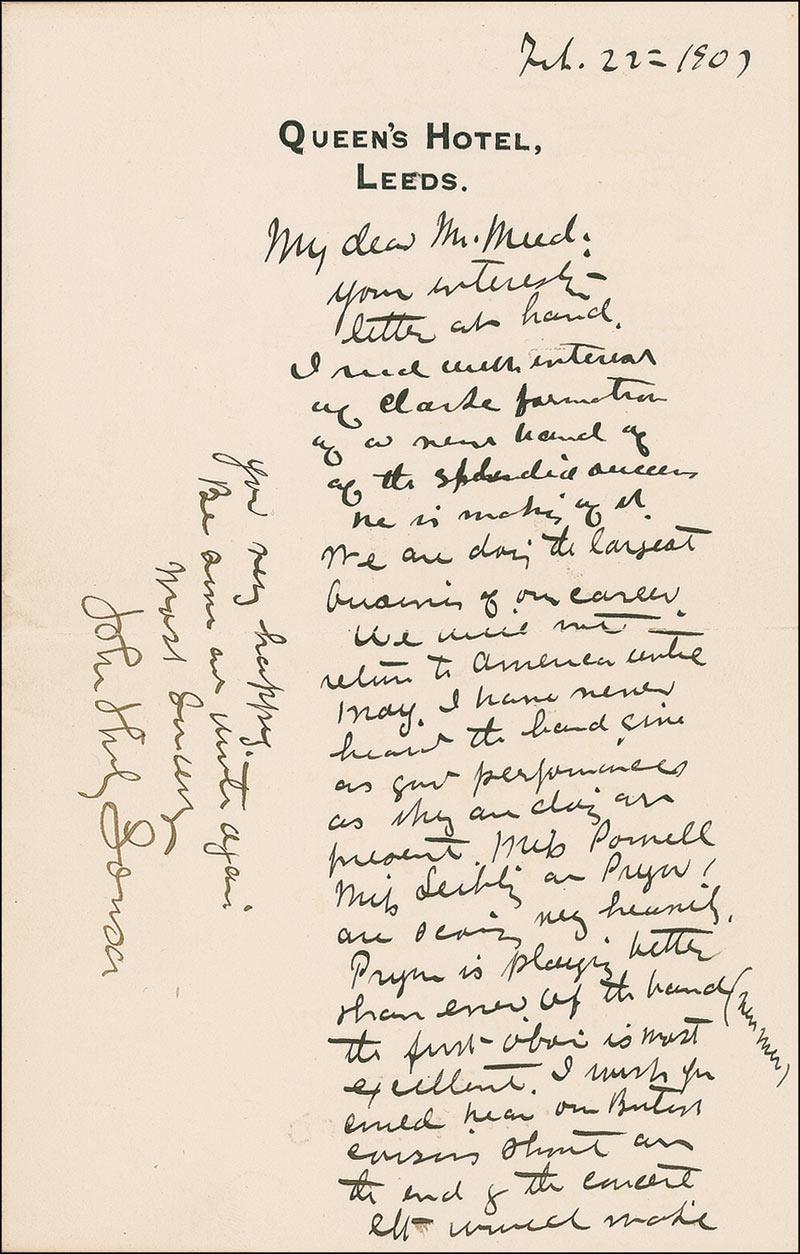 Feb. 22= 1903
QUEEN'S HOTEL,
LEEDS.
My dear Mr. Meed:
Your interesting
letter at hand.
I read with interest
of Clarke formation
of a new band &
of the splendid success
he is making of it.
We are doing the largest
business of our career.
We will not
return to America until
May. I have never
heard the band give
as good performances
as they are doing at
present. Miss Powell
Miss Liebling and Pryor,
are scoring very heavily.
Pryor is playing better
than ever. Of the band (new men)
the first oboe is most
excellent. I wish you
could hear our British
cousins shout at
the end of the concert
It would make
you very happy.
Be sure and write again
Most Sincerely
John Philip Sousa